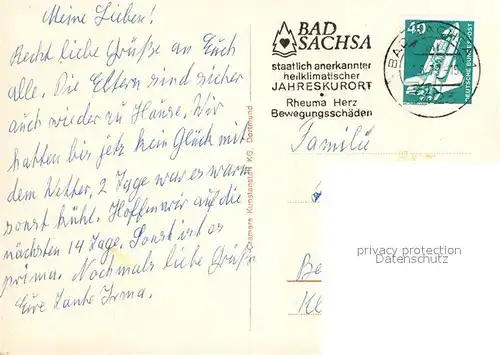 Meine Lieben!
Recht liebe Grüße an Euch
alle. Die Eltern sind sicher
auch wieder zu Hause. Wir
hatten bis jetz kein Glück mit
dem Wetter. 2 Tage war es warm
sonst kühl. Hoffen wir auf die
nächsten 14 Tage. Sonst ist es
prima. Nochmals liebe Grüße
Eure Tante Irma.
Cramers Kunstanstalt KG, Dortmund
BAD
SACHSA
staatlich anerkannter
heilklimatischer
JAHRESKURORT
Rheuma Herz
Bewegungsschäden
40
DEUTSCHE BUNDESPOST
Familie
privacy protection
Datenschutz